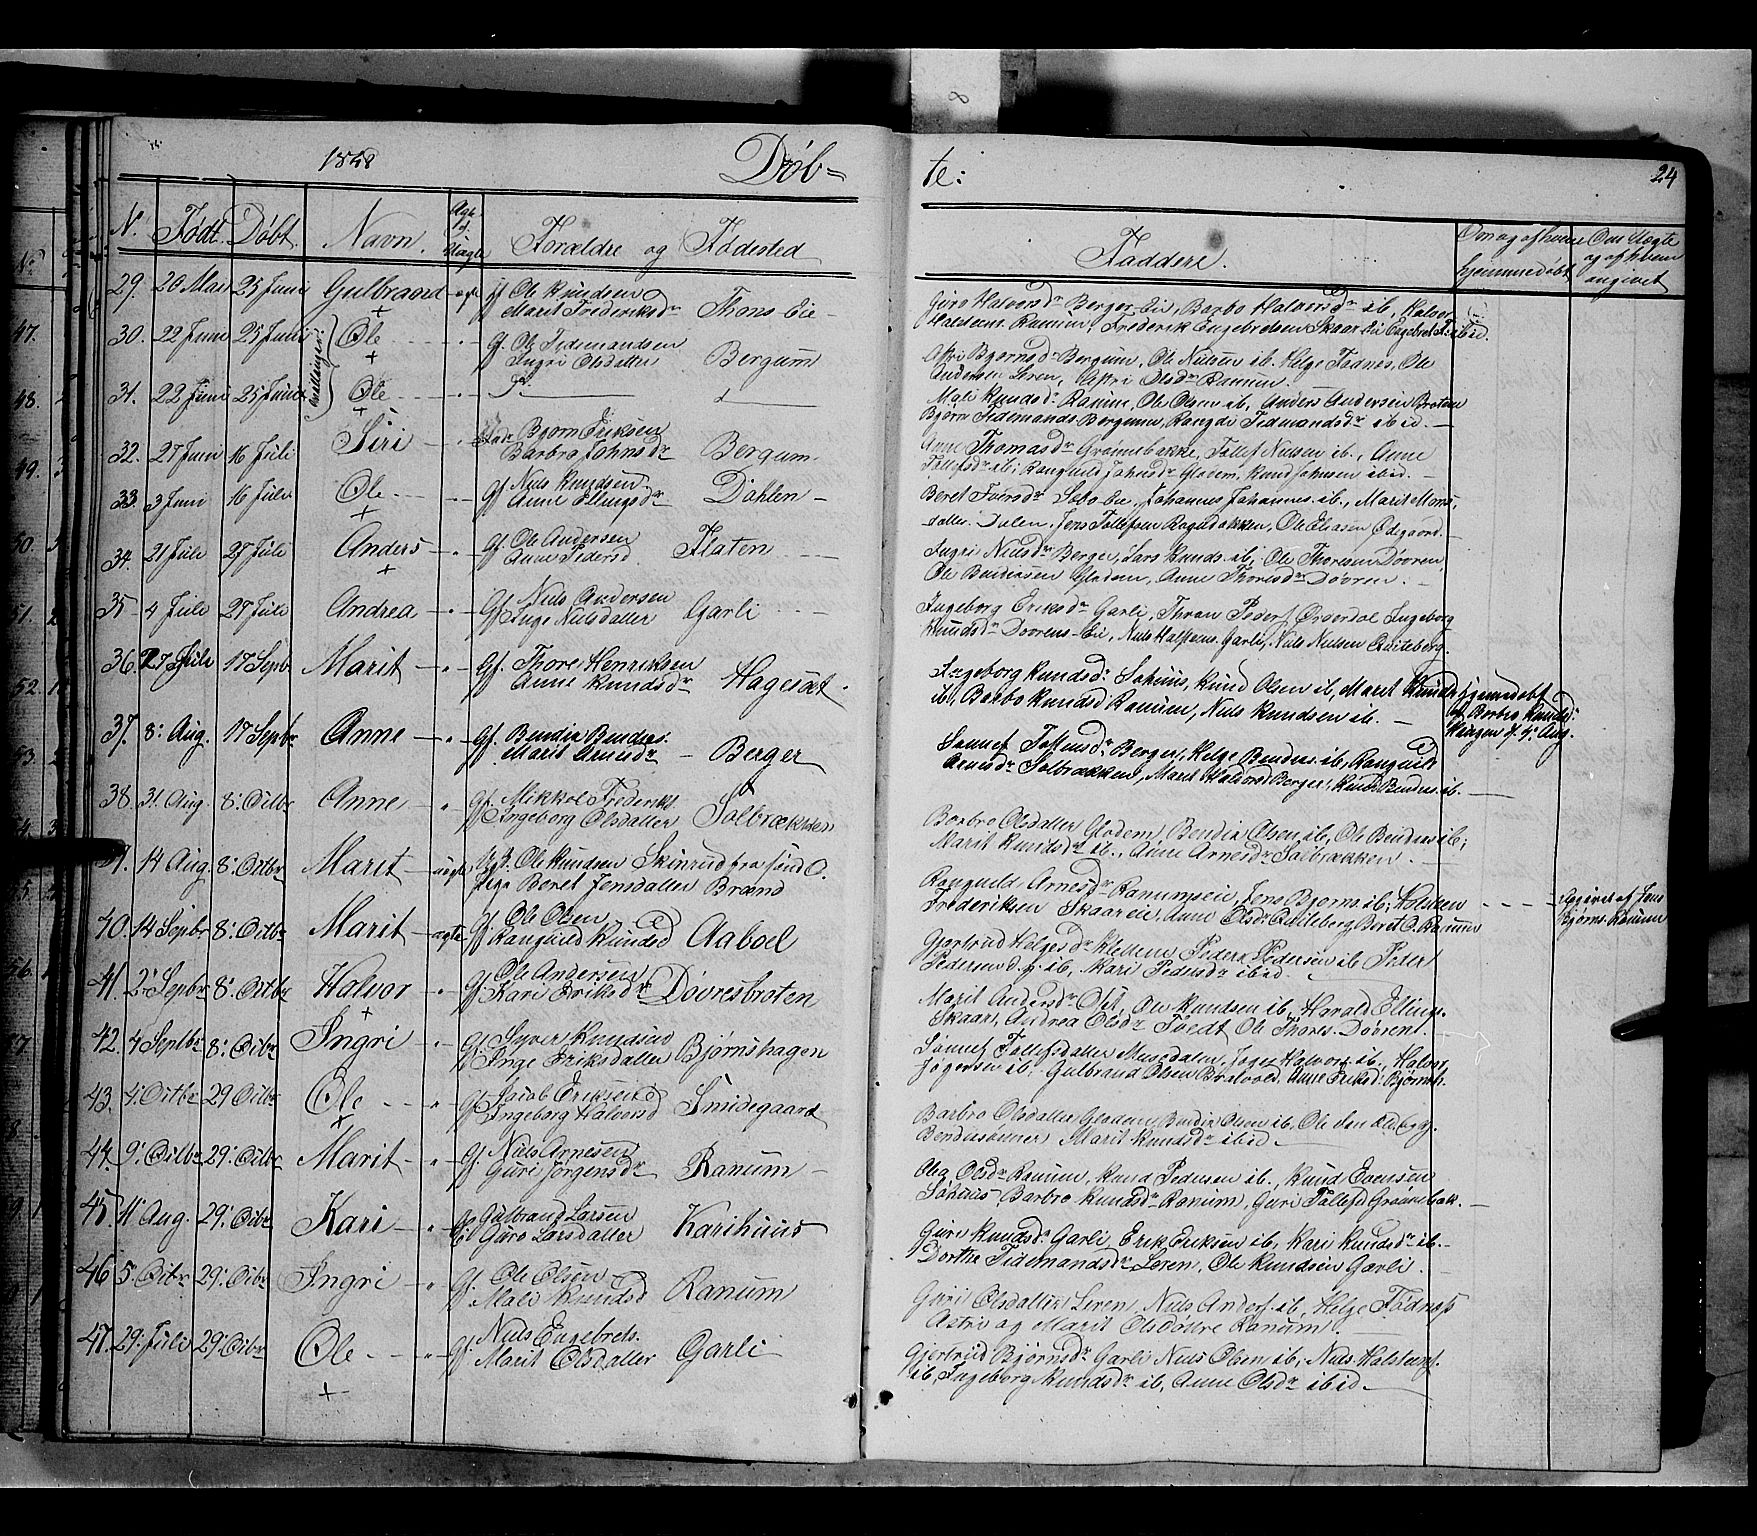 8
1848 Døb=
te: 24
N. Født. Døbt. Navn. Ægte el. Uægte Forældre og Fødested
Faddere. Om og af hvem hjemmedøbt Om Uægte og af hvem angivet
29. 20 Mai 25 Juni Gulbrand ægte Gf. Ole Knudsen
Marit Frederiksdr Thons Eie
Guro Halvorsdr Berger Eie, Barbo Halvorsdr ib, Halvor
Halstens. Ranum, Frederik Engebretsen Skaar Eie
30. 22 Juni 25 Juni Tvillinger Ole - " - Gf. Ole Tidemandsen
Ingri Olsdatter Bergum
Astri Bjørnsd Bergum, Ole Nilsen ib. Helge Fødnes, Ole
Andersen Leren, Astri Olsdr Ranum.
31. 22 Juni 25 Juni Ole - " -
Mali Knudsdr Ranum, Ole Olsen ib, Anders Andersen Braten
Bjørn Tidemands Bergum, Rangdi Tidmandsdr ibid.
32. 27 Juni 16 Juli Siri - " - Bjørn Eriksen
Barbro Johnsdr Bergum.
Anne Thomasdr Grønnebakke, Tollef Nilsen ib., Anne
Tollefsdr ib; Ranguild Johnsdr Glodem, Knud Johnsen ibid.
33. 3 Juni 16 Juli Ole - " - Gf. Nils Knudsen
Anne Ellingsdr Dahlen
Beret Iversdr Sebo Eie, Johannes Johannes. ib., Marit Mons
datter Dalen, Jens Tollefsen Bagndokken, Ole Eliasen Ødegaard.
34. 21 Juli 27 Juli Anders - " - Gf. Ole Andersen
Anne Pedersd. Flaten
Ingri Nilsdr Berger, Lars Knuds. ib; Ole Thoresen Døvren,
Ole Bendiksen Glodem, Anne Thoresdr Døvren.
35 4 Juli 27 Juli Andrea - " - Gf. Nils Andersen
Inge Nilsdatter Garli
Ingeborg Eriksdr Garli, Thron Peders. Øverdal Ingeborg
Knudsdr Dovrens Eie, Nils Halstens. Garli, Nils Nielsen Qviteberg.
36. 27 Juli 17 Sepbr Marit - " - Gf. Thore Henriksen
Anne Knudsdr Hagesæt.
Ingeborg Knudsd: Søhuus, Knud Olsen ib, Marit Knuds
ib, Barbo Knudsd Ranum, Nils Knudsen ib.
hjemmedøbt
af Barbro Knudsd:
37. 8: Aug. 17 Sepbr Anne - " - Gf. Bendix Bendixs.
Marit Arnesdr - Berger
Sønnef Tostensdr Berger, Helge Bendixs. ib, Ranguild
Arnesdr Solbrækken, Marit Halvorsd Berger, Knud Bendixs. ib.
38. 31 Aug. 8: Octbr Anne - " Gf. Mikkel Frederiks.
Ingeborg Olsdatter Solbrækken
Barbro Olsdatter Glodem, Bendix Olsen ib, Ole Bendixs ib;
Marit Knudsdr ib., Anne Arnesdr Solbrækken.
39. 14 Aug. 8: Octbr Marit - uægte Ole Knudsen Skinrud fra Sønd O.
Pige Beret Jensdatter Brænd
Ranguild Arnesdr Ranumseie, Jens Bjørns ib; Halsten
Frederiksen Skaareie, Anne Olsdr Qviteberg, Beret O. Ranum
Opgivet af Jens
Bjørns. Ranum
40. 14 Sepbr 8: Octbr Marit - ægte Gf. Ole Olsen
Ranguild Knudsd Aaboel
Gjertrud Helgesdr Klettem, Peder Pedersen ib, Peder
Pedersen d. y. ib, Kari Pedersdr ibid.
41. 2 Sepbr 8: Octbr Halvor - " Gf. Ole Andersen
Kari Eriksdr Døvresbroten
Marit Andersdr Obst, Ole Knudsen ib, Harald Ellings.
Skaar, Andrea Olsdr Toedt, Ole Thores. Døvren.
42. 4 Septbr 8: Octbr Ingri - " Gf. Syver Knudsen
Inge Eriksdatter Bjørnshagen
Sønnef Tollefsdatter Musedalen, Jøger Halvors ib, Halvor
Jøgersen ib. Gulbrand Olsen Bratvold, Anne Eriksd: Bjørnsh.
43. 4. Octbr 29 Octbr Ole - - " Gf. Jacob Eriksen
Ingeborg Halvorsd Smidegaard
Barbro Olsdatter Glodem, Bendix Olsen ib, Ole den æld. og y.
Bendixsønner, Marit Knudsdr ibid.
44. 9: Octbr 29: Octbr Marit - " Gf. Nils Arnesen
Guri Jørgensdr Ranum -
Olea Olsdr Ranum, Knud Pedersen ib., Knud Evensen
Søhuus, Barbro Knudsdr Ranum, Guri Tollefsd Grønnebak.
45. 11 Aug. 29: Octbr Kari - " Gulbrand Larsen
Guro Larsdatter Karihuus
Guri Knudsdr Garli, Erik Eriksen ib, Kari Knudsdr ib.
Dorthe Tidemandsdr Leren, Ole Knudsen Garli.
46. 5. Octbr 29: Octbr Ingri - " Gf. Ole Olsen
Mali Knudsd Ranum
Guri Olsdatter Leren, Nils Anders. ib, Helge Fødness
Astri og Marit Olsdøttre Ranum.
47. 29: Juli 29: Octbr Ole - - " Gf. Nils Engebrets.
Marit Olsdatter Garli
Gjertrud Bjørnsdr Garli Nils Olsen ib, Nils Halstens.
ib, Ingeborg Knudsdr ib, Anne Olsdr ibid.